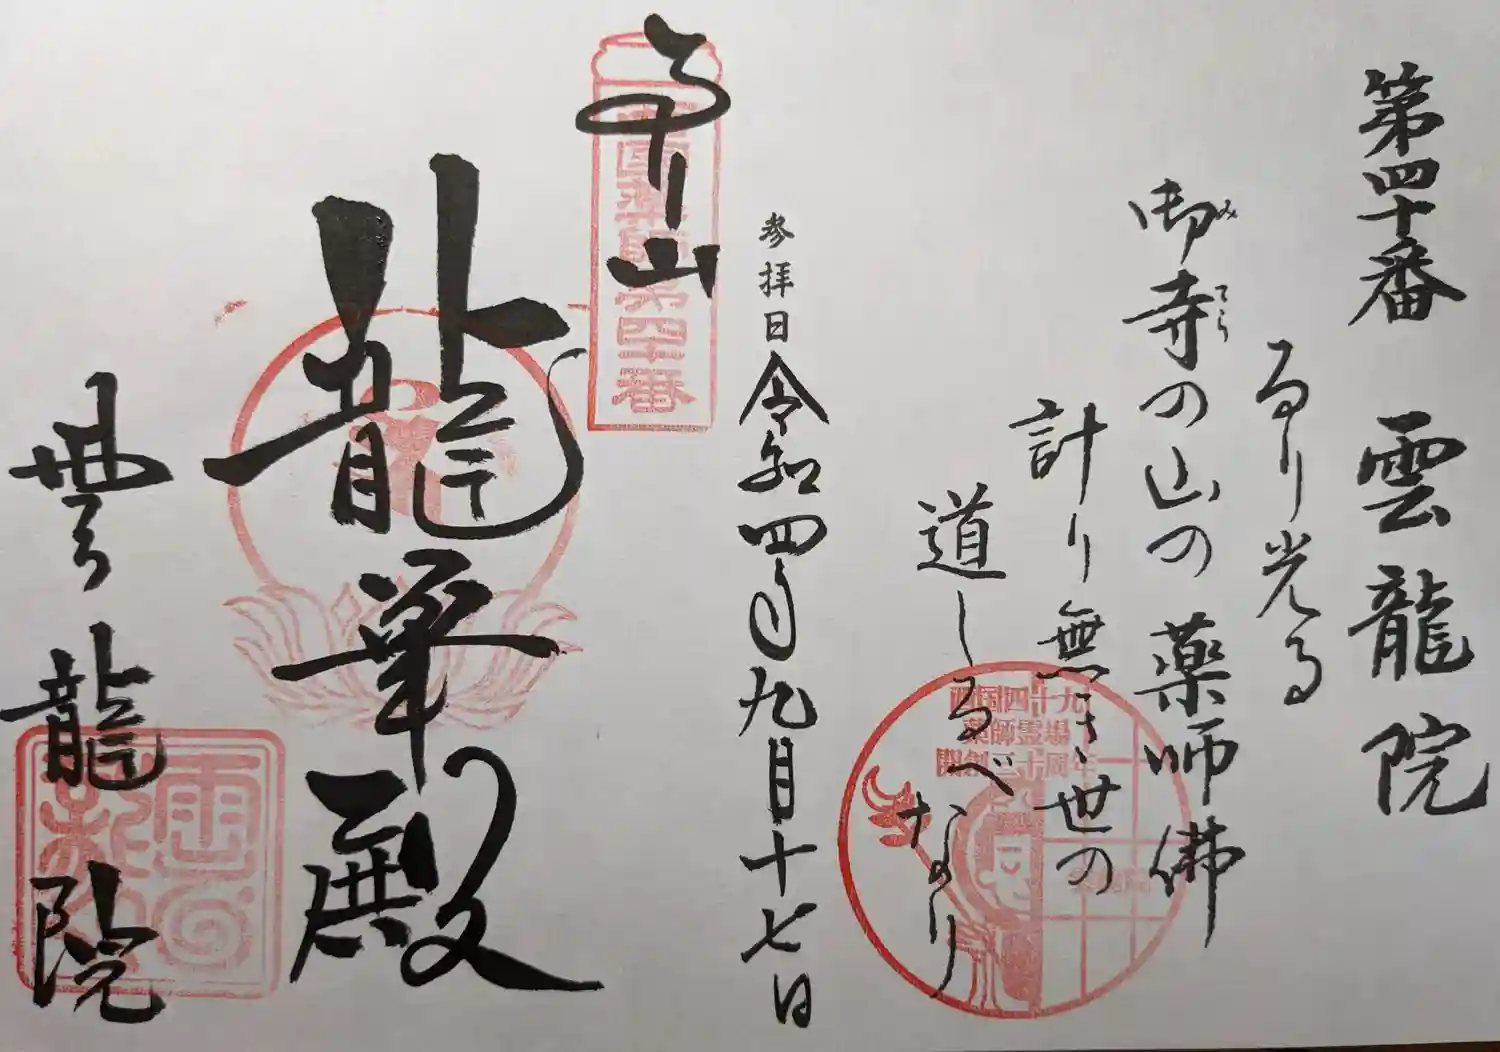 第四十番 雲龍院
るり光る
み てら
御寺の山の薬師佛
計り無き世の
道しるべなり
西国四十九
薬師霊場
開創三十周年
参拝日令和四年九月十七日
るり山
西国薬師第四十番
龍華殿
雲龍院